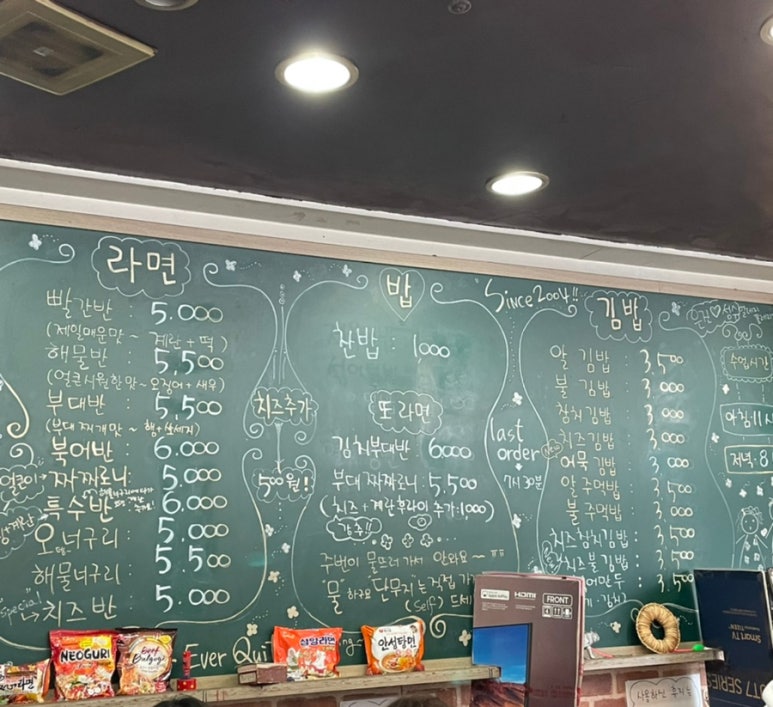 라면
빨간반 : 5.000
(제일매운맛 ~ 계란 + 떡)
해물반 : 5,500
(얼큰시원한맛 ~ 오징어 + 새우)
부대반 : 5,500
(부대찌개맛 ~ 햄+소세지)
북어반 : 6.000
짜짜로니 : 5.000
특수반 : 6.000
오뎅너구리 : 5.000
해물너구리 : 5.500
"Special" 치즈반 : 5.000
치즈추가
500원!
밥
찬밥 : 1000
또 라면
김치부대반 : 6000
부대 짜짜로니 : 5,500
(치즈 + 계란후라이 추가:1,000)
강추!!
주변이 물뜨러가서 안와요~ ㅠㅠ
"물" 하구요 "단무지"는 직접
(Self)
"Since 2004!!
last order
7시 30분
김밥
알 김밥 : 3,500
불 김밥 : 3,500
참치김밥 : 3,500
치즈김밥 : 3,500
New 어묵김밥 : 3,000
알주먹밥 : 3,000
불주먹밥 : 3,000
치즈참치김밥 : 3,500
치즈불김밥 : 3,500
3,500
아침:11시
저녁:8
Ever
NEOGURI
Beef Bulgogi
삼양라면
안성탕면
HDMI
FRONT
Smart TV
T7 SERIES